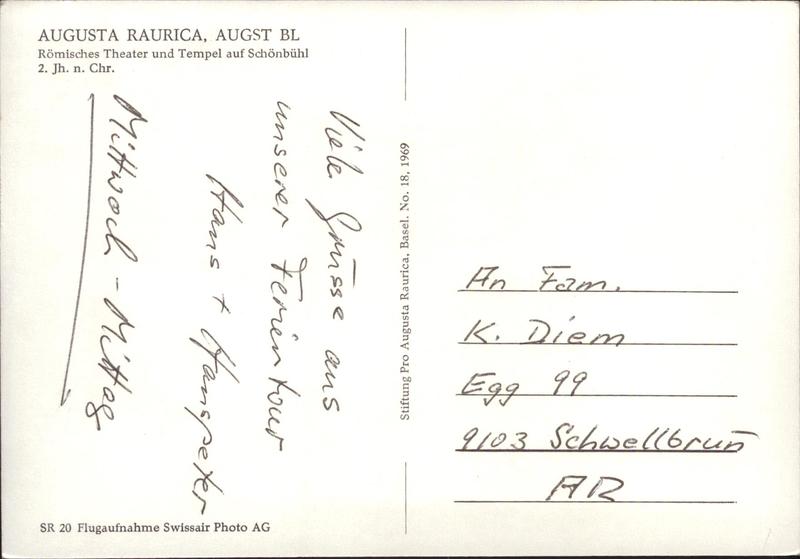 AUGUSTA RAURICA, AUGST BL
Römisches Theater und Tempel auf Schönbühl
2. Jh. n. Chr.
Viele Grüsse aus
unserer Ferientour
Hans + Hanspeter
Mittwoch - Mittag
SR 20 Flugaufnahme Swissair Photo AG
Stiftung Pro Augusta Raurica, Basel. No. 18, 1969
An Fam.
K. Diem
Egg 99
9103 Schwellbrun̄
AR